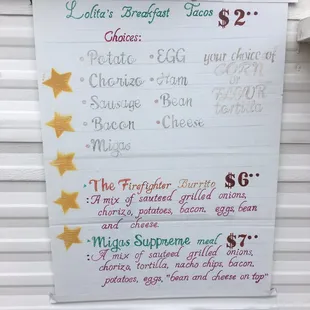 Lolita's Breakfast Tacos $2••
Choices:
• Potato • EGG your choice of
• Chorizo • Ham CORN
• Sausage • Bean or FLOUR
• Bacon • Cheese tortilla
• Migas
• The Firefighter Burrito $6••
: A mix of sauteed grilled onions,
chorizo, potatoes, bacon, eggs, bean
and cheese
• Migas Suppreme meal $7••
: A mix of sauteed grilled onions,
chorizo, tortilla, nacho chips, bacon,
potatoes, eggs, "bean and cheese on top"